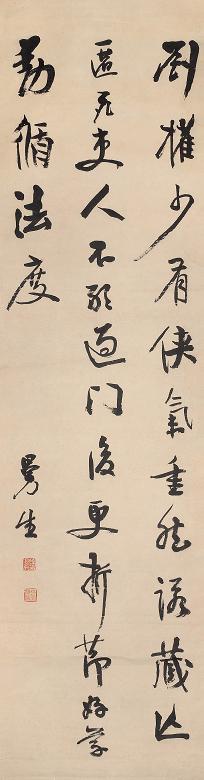 劉權少有俠氣重然諾藏亡
匿死吏人不敢過门後更折節好學
動循法度
曼生